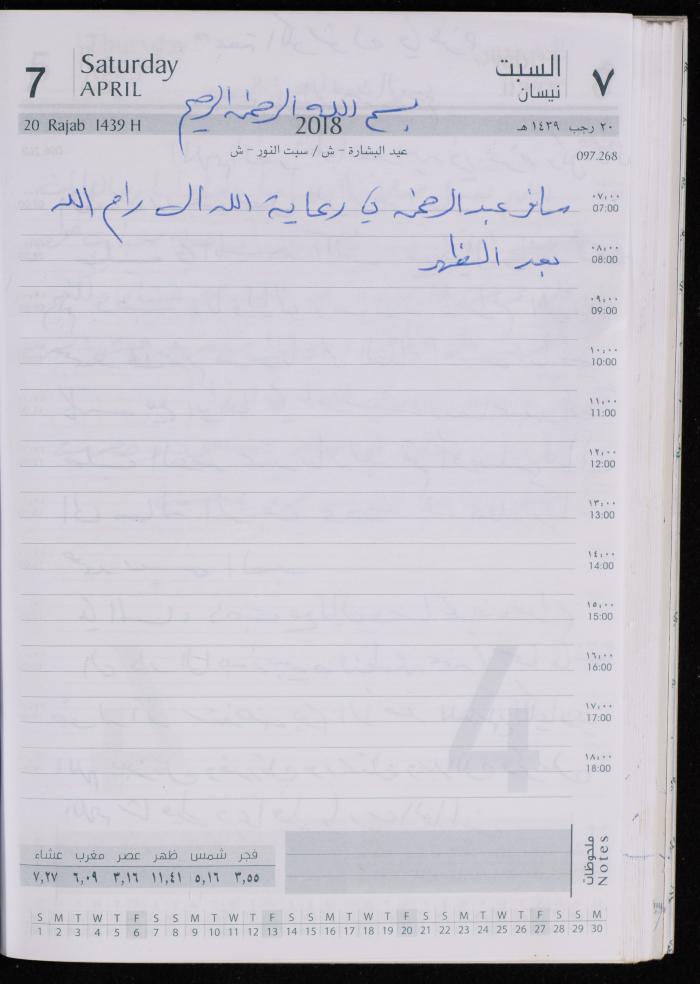 7 Saturday APRIL السبت نيسان ٧
بسم الله الرحمن الرحيم
20 Rajab 1439 H 2018 ٢٠ رجب ١٤٣٩ هـ
عيد البشارة - ش / سبت النور - ش 097.268
سافر عبد الرحمن في رعاية الله الى رام الله
٠٧:٠٠ 07:00
بعد الظهر
٠٨:٠٠ 08:00
٠٩:٠٠ 09:00
١٠:٠٠ 10:00
١١:٠٠ 11:00
١٢:٠٠ 12:00
١٣:٠٠ 13:00
١٤:٠٠ 14:00
١٥:٠٠ 15:00
١٦:٠٠ 16:00
١٧:٠٠ 17:00
١٨:٠٠ 18:00
ملحوظات Notes
فجر شمس ظهر عصر مغرب عشاء
٣,٥٥ ٥,١٦ ١١,٤١ ٣,١٦ ٦,٠٩ ٧,٢٧
S M T W T F S S M T W T F S S M T W T F S S M T W T F S S M
1 2 3 4 5 6 7 8 9 10 11 12 13 14 15 16 17 18 19 20 21 22 23 24 25 26 27 28 29 30